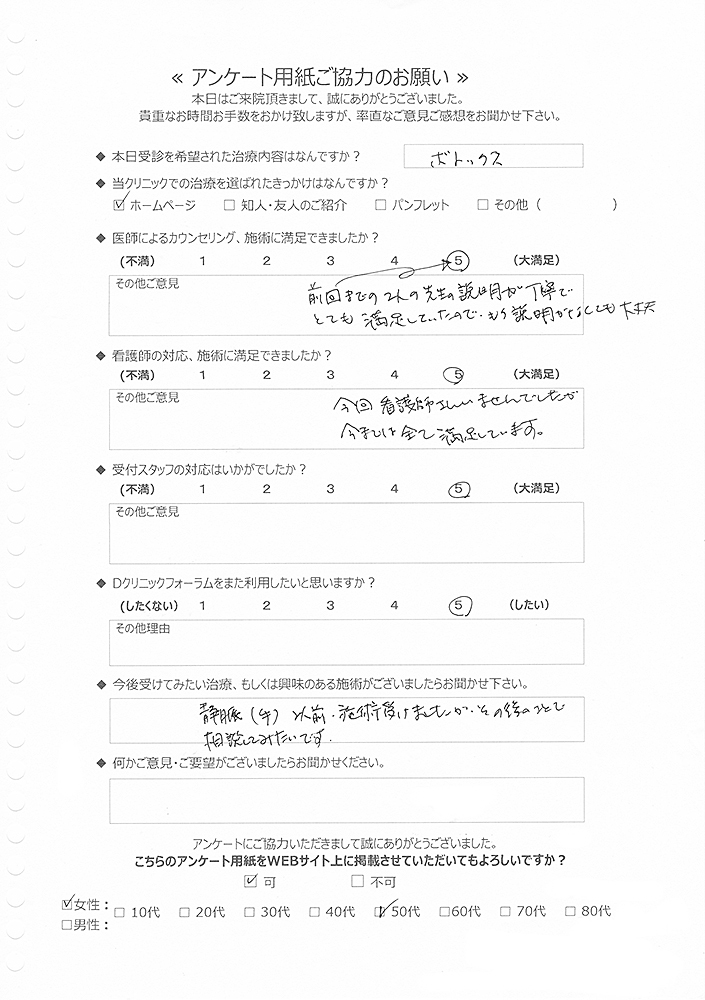 ≪ アンケート用紙ご協力のお願い ≫
本日はご来院頂きまして、誠にありがとうございました。
貴重なお時間お手数をおかけ致しますが、率直なご意見ご感想をお聞かせ下さい。
◆ 本日受診を希望された治療内容はなんですか？ ボトックス
◆ 当クリニックでの治療を選ばれたきっかけはなんですか？
☑ ホームページ □ 知人・友人のご紹介 □ パンフレット □ その他（ ）
◆ 医師によるカウンセリング、施術に満足できましたか？
(不満) 1 2 3 4 5 (大満足)
その他ご意見
前回までの2人の先生の説明が丁寧で
とても満足していたので、もう説明がなくても大丈夫
◆ 看護師の対応、施術に満足できましたか？
(不満) 1 2 3 4 5 (大満足)
その他ご意見
今回看護師さんいませんでしたが
今までは全て満足しています。
◆ 受付スタッフの対応はいかがでしたか？
(不満) 1 2 3 4 5 (大満足)
その他ご意見
◆ Dクリニックフォーラムをまた利用したいと思いますか？
(したくない) 1 2 3 4 5 (したい)
その他理由
◆ 今後受けてみたい治療、もしくは興味のある施術がございましたらお聞かせ下さい。
静脈（手）以前、施術受けましたが、その後のことで
相談してみたいです.
◆ 何かご意見・ご要望がございましたらお聞かせください。
アンケートにご協力いただきまして誠にありがとうございました。
こちらのアンケート用紙をWEBサイト上に掲載させていただいてもよろしいですか？
☑ 可 □ 不可
☑女性： □ 10代 □ 20代 □ 30代 □ 40代 ☑ 50代 □60代 □ 70代 □ 80代
□男性：